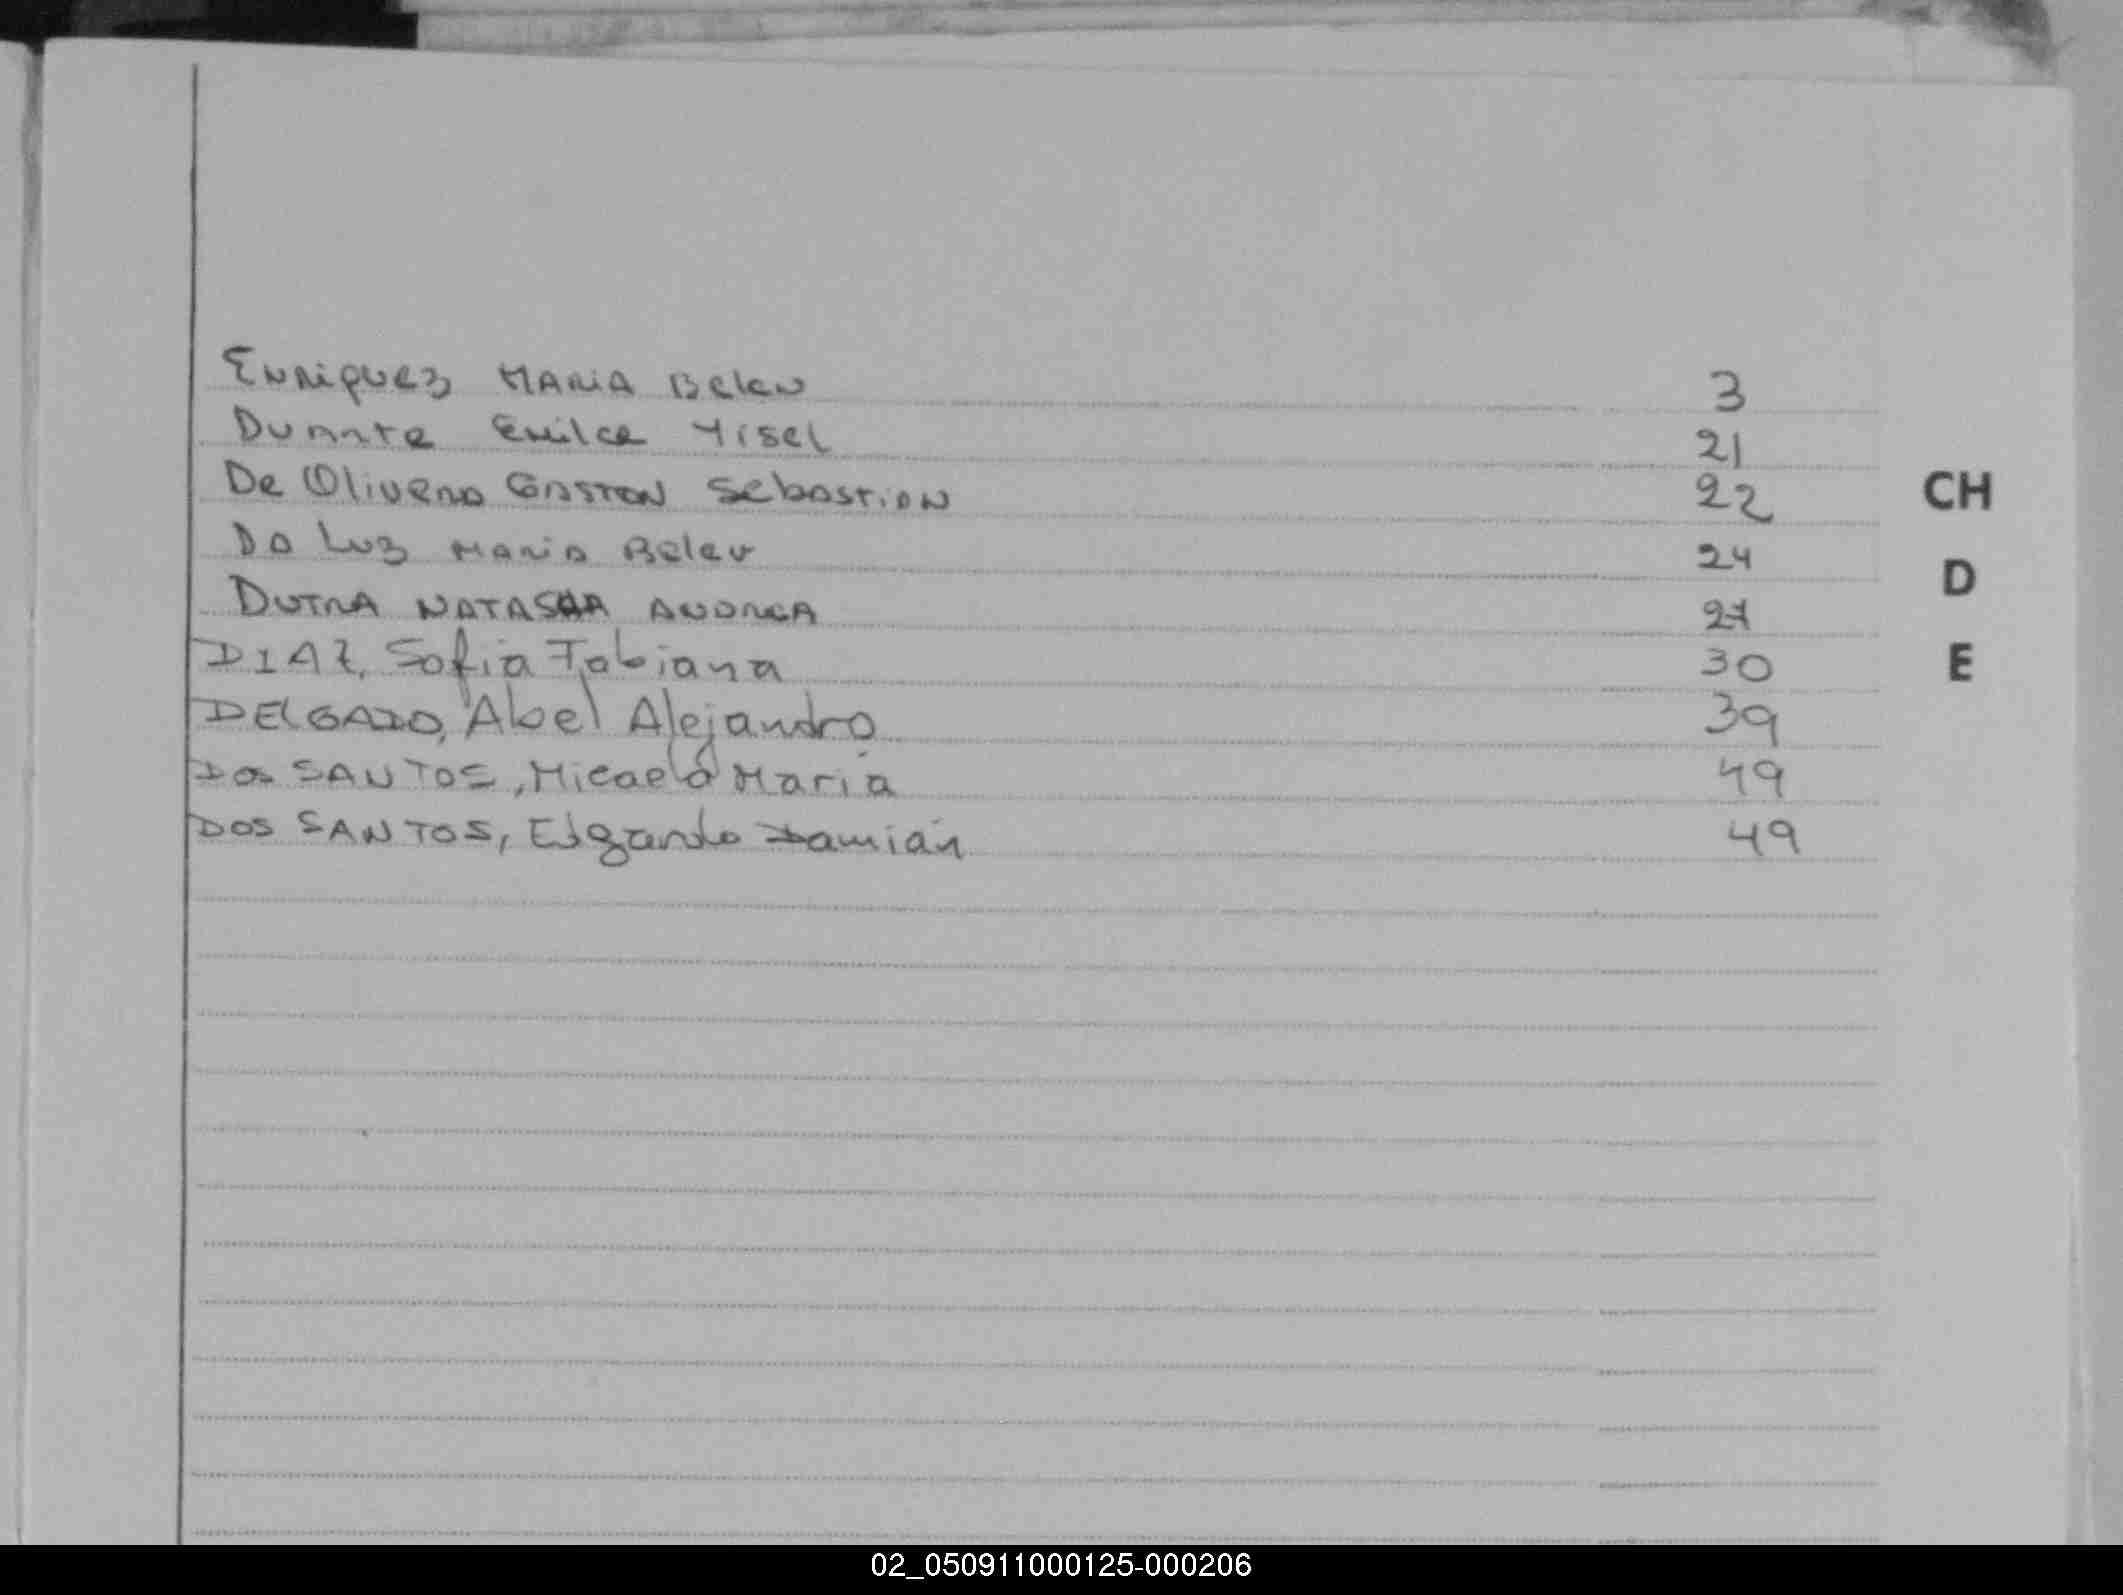 Enriquez MARIA Belen 3
Duarte Emilce Yisel 21
De Olivera GASTON Sebastian 22
Da Luz Maria Belen 24
DUTRA NATASHA ANDREA 27
DIAZ, Sofia Fabiana 30
DELGADO, Abel Alejandro 39
DOS SANTOS, Micaela Maria 49
DOS SANTOS, Edgardo Damián 49
CH
D
E
02_050911000125-000206